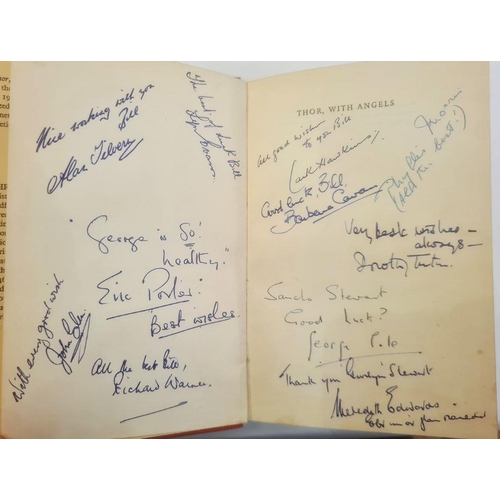 Nice working with you
Bill
Alan Tilvern
The best of luck Bill
"George is So'
healthy."
Eric Porter
Best wishes.
With every good wish
John
All the best Bill,
Richard Warner
THOR, WITH ANGELS
All good wishes
to you Bill
Hawkins
Good luck, Bill
Barbara
Phyllis Morris
Very best wishes –
always –
Dorothy Tutin.
Sancho Stewart
Good Luck?
George
Thank you Stewart
Meredith Edwards